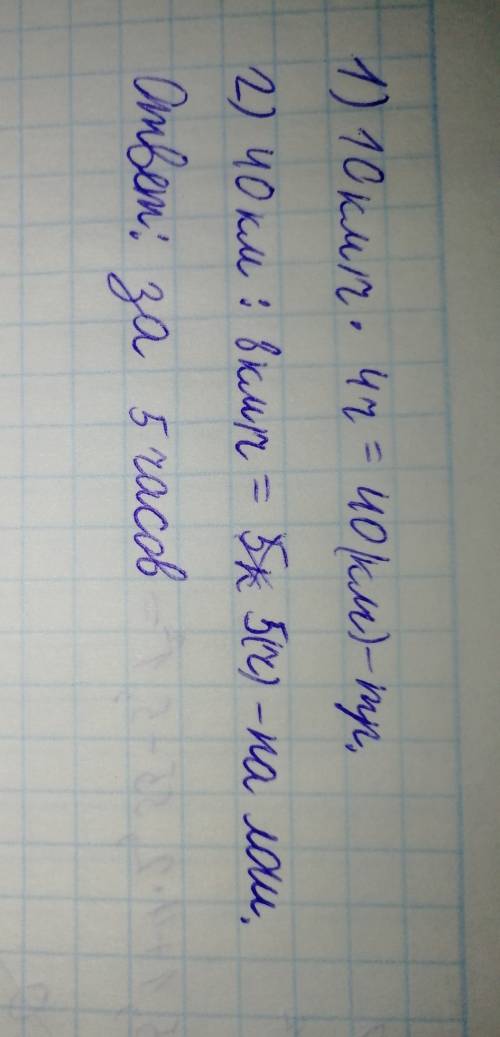 1) 10 км/ч · 4ч = 40(км) - тр.
2) 40 км : 8 км/ч = 5(ч) - на лош.
Ответ: за 5 часов